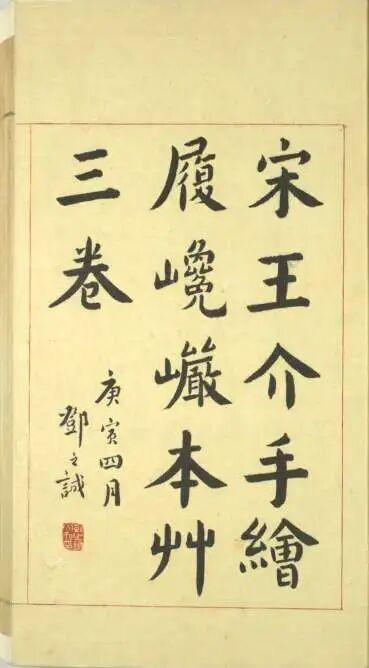 宋王介手繪
履巉巖本艸
三卷
庚寅四月
鄧之誠